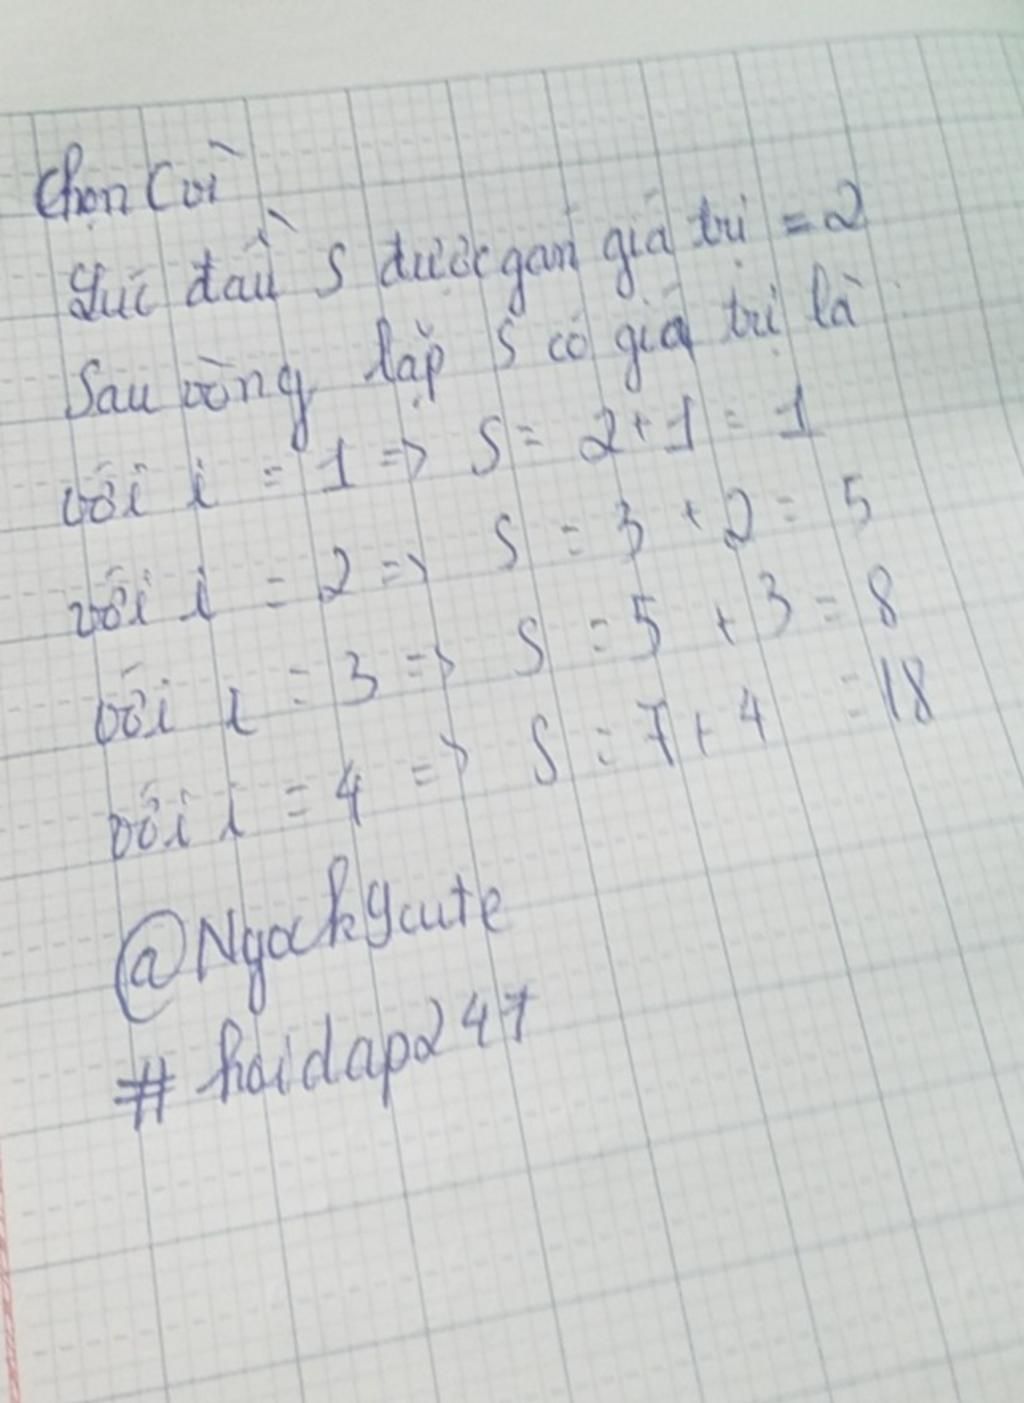 Chọn C vì
Lúc đầu S được gán giá trị = 2
Sau vòng lặp S có giá trị là
với i = 1 => S = 2 + 1 = 1
với i = 2 => S = 3 + 2 = 5
với i = 3 => S = 5 + 3 = 8
với i = 4 => S = 7 + 4 = 18
@Ngockycute
# hoidap247